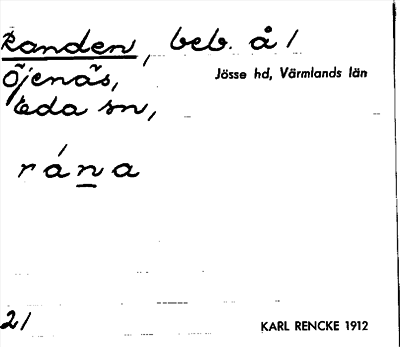 Randen, beb. å 1
Öjenäs,
Jösse hd, Värmlands län
Eda sn,
rána
21
KARL RENCKE 1912